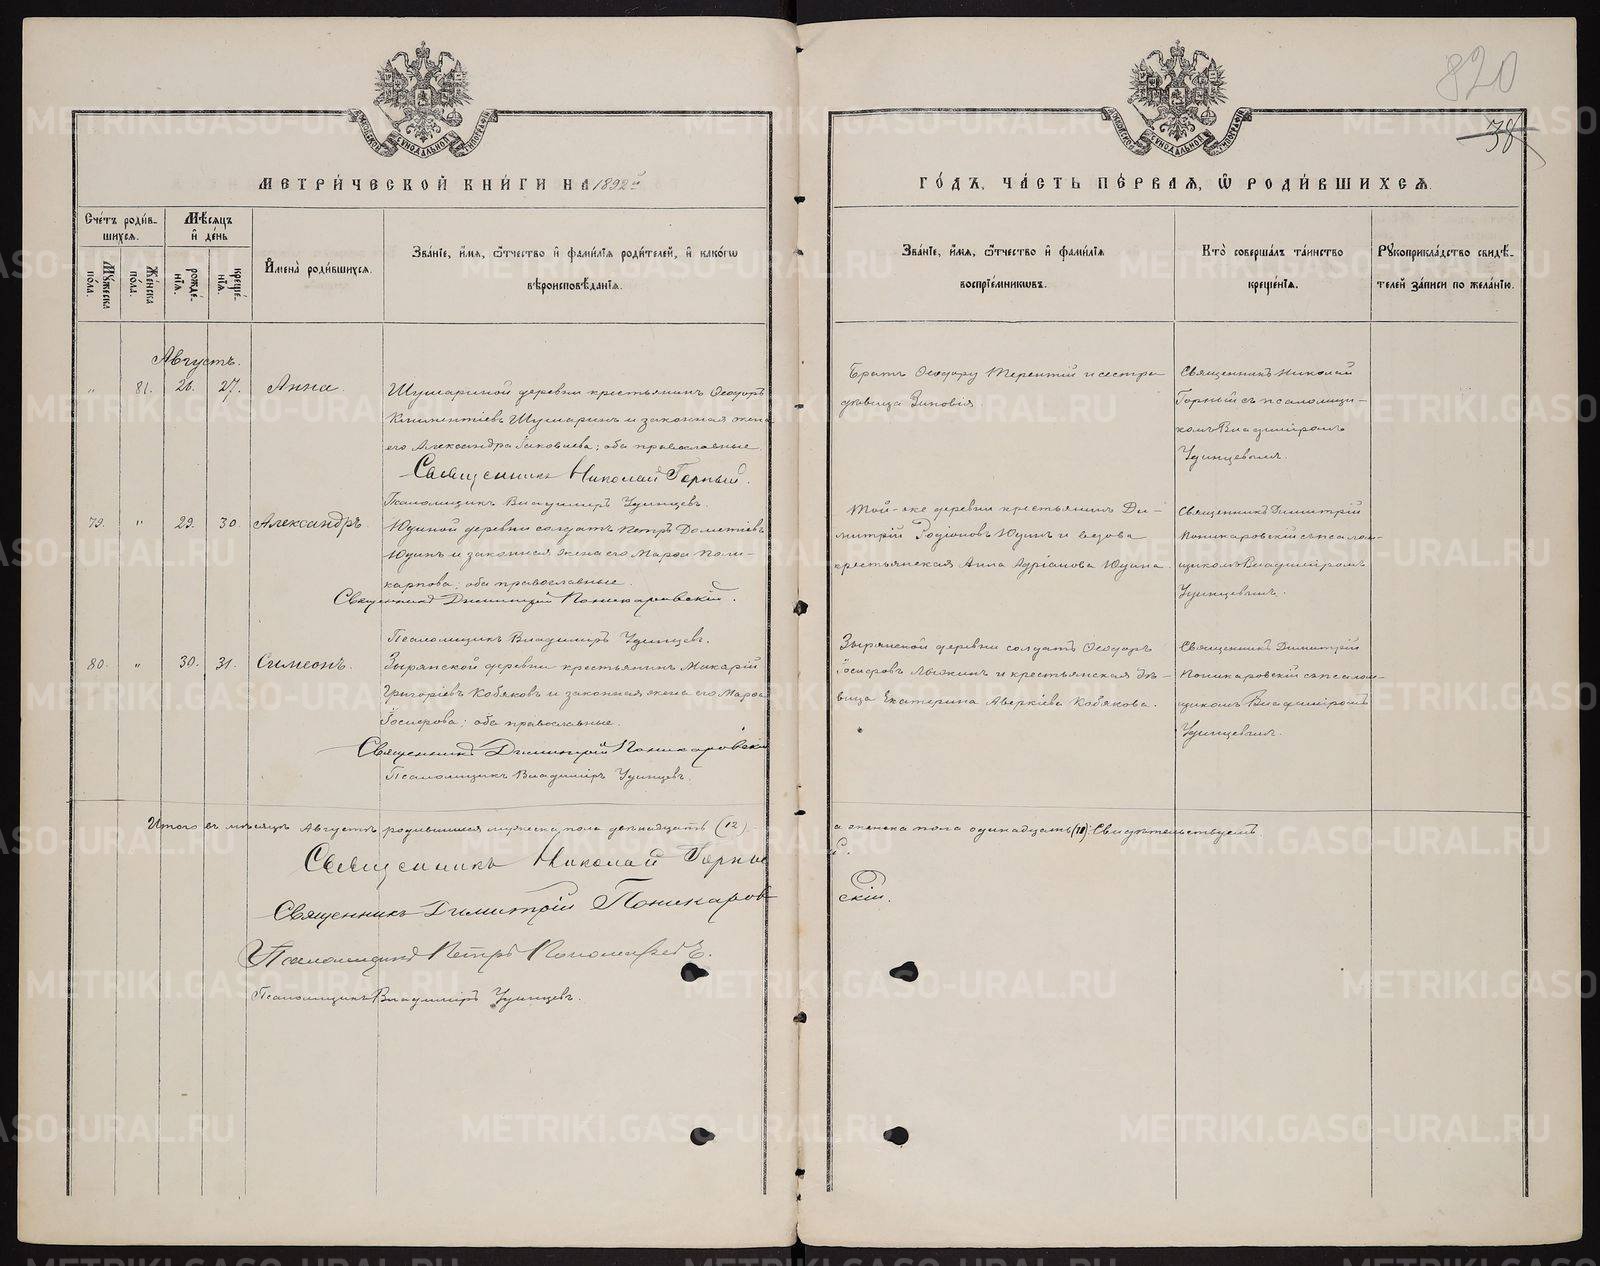 820
38
МЕТРИ́ЧЕСКОЙ КНИ́ГИ НА 1892й
ГО́ДЪ, ЧА́СТЬ ПЕ́РВАЯ, Ѽ РОДИ́ВШИХСѦ.
Сче́тъ роди́в-
шихсѧ.
Му́жеска пола.
Же́нска пола.
Мѣ́сѧцъ
и҆ де́нь
рожде́-
нїѧ.
креще́-
нїѧ.
И҆мена̀ роди́вшихсѧ.
Зва́нїе, и҆́мѧ, ѻ҆́тчество и҆ фами́лїѧ роди́телей, и҆ како́гѡ
вѣроисповѣ́данїѧ.
Зва́нїе, и҆́мѧ, ѻ҆́тчество и҆ фами́лїѧ
воспрїе́мникѡвъ.
Кто̀ соверша́лъ та́инство
креще́нїѧ.
Рꙋкоприкла́дство свидѣ́-
телей за́писи по жела́нїю.
Августъ.
" 81. 26. 27. Анна.
Шушариной деревни крестьянинъ Ѳеодоръ
Климентіевъ Шушаринъ и законная жена
его Александра Іаковлева; оба православные
Священникъ Николай Горный.
Псаломщикъ Владиміръ Удинцевъ.
Братъ Ѳеодору Терентій и сестра
дѣвица Зиновія.
Священникъ Николай
Горный съ псаломщи-
комъ Владиміромъ
Удинцевымъ.
79. " 29. 30. Александръ.
Юдиной деревни солдатъ Петръ Дометіевъ
Юдинъ и законная жена его Марѳа Поли-
карпова; оба православные.
Священникъ Димитрій Поникаровскій.
Псаломщикъ Владиміръ Удинцевъ.
Той-же деревни крестьянинъ Ди-
митрій Родіоновъ Юдинъ и вдова
крестьянская Анна Адріанова Юдина.
Священникъ Димитрій
Поникаровскій съ псалом-
щикомъ Владиміромъ
Удинцевымъ.
80. " 30. 31. Симеонъ.
Зырянской деревни крестьянинъ Макарій
Григоріевъ Кобяковъ и законная жена его Марѳа
Іосифова; оба православные.
Священникъ Димитрій Поникаровскій
Псаломщикъ Владиміръ Удинцевъ.
Зырянской деревни солдатъ Ѳеодоръ
Іосифовъ Лыжинъ и крестьянская дѣ-
вица Екатерина Аверкіева Кобякова.
Священникъ Димитрій
Поникаровскій съ псалом-
щикомъ Владиміромъ
Удинцевымъ.
Итого въ мѣсяцѣ Августѣ родившихся мужеска пола двѣнадцать (12)
а женска пола одинадцать (11). Свидѣтельствуемъ
Священникъ Николай Горный.
Священникъ Димитрій Поникаров-
скій.
Псаломщикъ Петръ
Псаломщикъ Владиміръ Удинцевъ.
METRIKI.GASO-URAL.RU